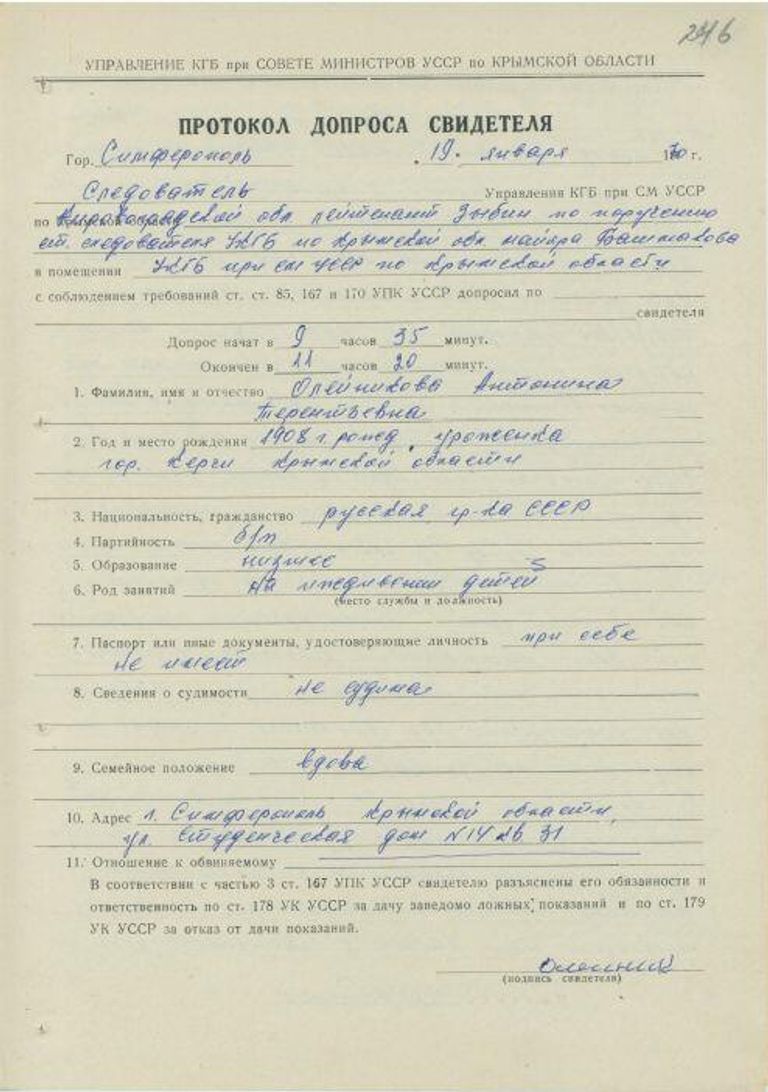 246
УПРАВЛЕНИЕ КГБ при СОВЕТЕ МИНИСТРОВ УССР по КРЫМСКОЙ ОБЛАСТИ
ПРОТОКОЛ ДОПРОСА СВИДЕТЕЛЯ
Гор. Симферополь . 19. января 1970 г.
Следователь Управления КГБ при СМ УССР
по Кировоградской обл. лейтенант Зыбин по поручению
ст. следователя УКГБ по Крымской обл. майора Башмакова
в помещении УКГБ при СМ УССР по Крымской области
с соблюдением требований ст. ст. 85, 167 и 170 УПК УССР допросил по
свидетеля
Допрос начат в 9 часов 35 минут.
Окончен в 11 часов 20 минут.
1. Фамилия, имя и отчество Олейникова Антонина
Терентьевна
2. Год и место рождения 1908 г. рожд. уроженка
гор. Керчи Крымской области
3. Национальность, гражданство русская гр-ка СССР
4. Партийность б/п
5. Образование низшее
6. Род занятий на иждивении детей
(место службы и должность)
7. Паспорт или иные документы, удостоверяющие личность при себе
не имеет
8. Сведения о судимости не судима
9. Семейное положение вдова
10. Адрес г. Симферополь Крымской области,
ул. Студенческая дом №14 кв 31
11. Отношение к обвиняемому
В соответствии с частью 3 ст. 167 УПК УССР свидетелю разъяснены его обязанности и
ответственность по ст. 178 УК УССР за дачу заведомо ложных показаний и по ст. 179
УК УССР за отказ от дачи показаний.
(подпись свидетеля)